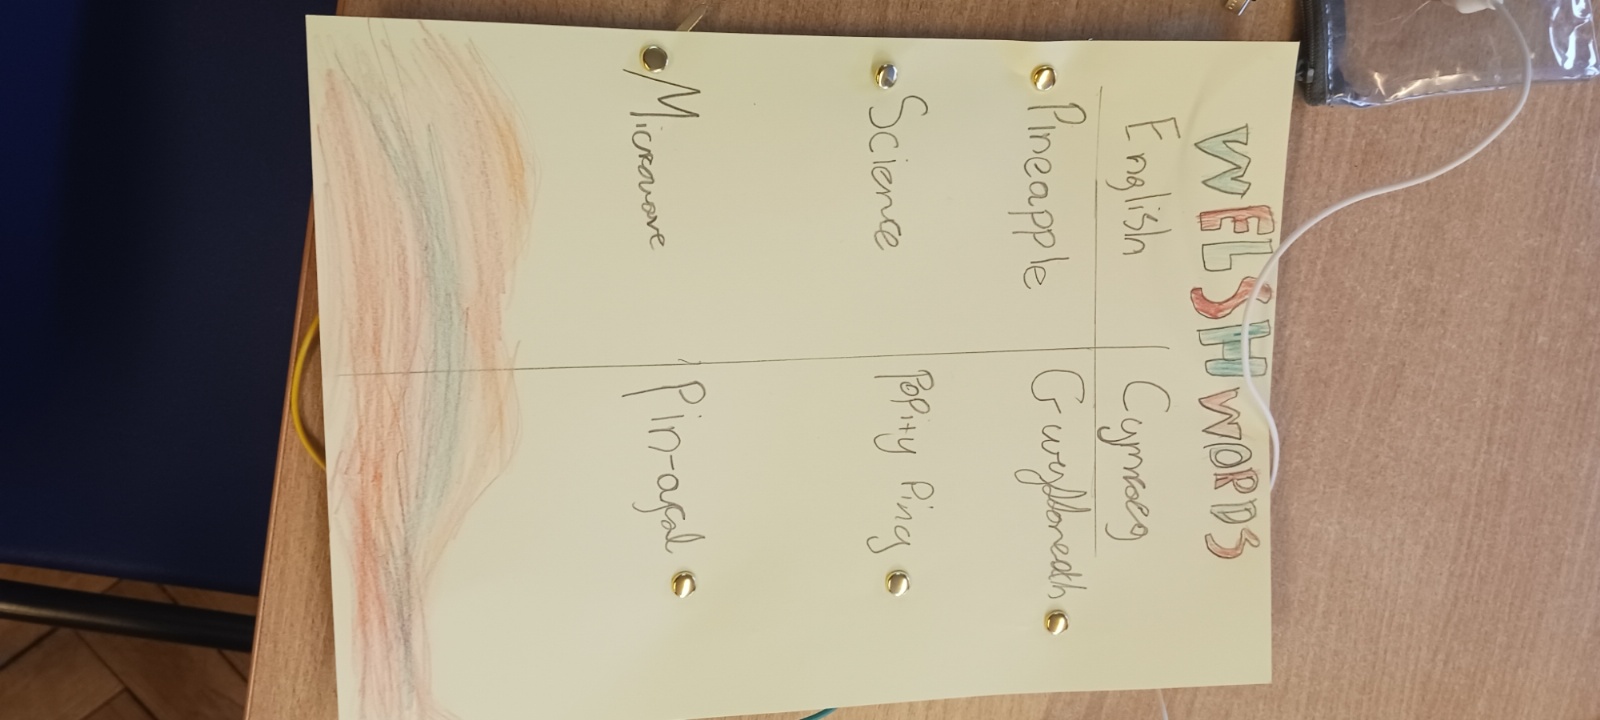 WELSH WORDS
English Cymraeg
Pineapple Gwyddoneath
Science Popity Ping
Microwave Pin-afal